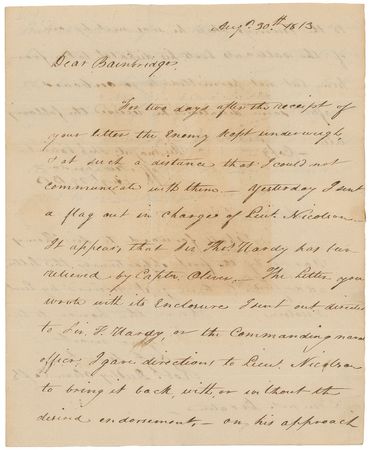 Augt. 30th 1813
Dear Bainbridge,
For two days after the receipt of
your letter the Enemy kept underweigh,
& at such a distance that I could not
communicate with them. — Yesterday I sent
a flag out in charge of Lieut. Nicolson —
It appears that Sir Thos. Hardy has been
relieved by Captn. Oliver. — The Letter you
wrote with its Enclosure I sent out directed
to Sir T. Hardy, or the Commanding naval
officer, I gave directions to Lieut. Nicolson
to bring it back, with, or without the
desired endorsement, — on his approach